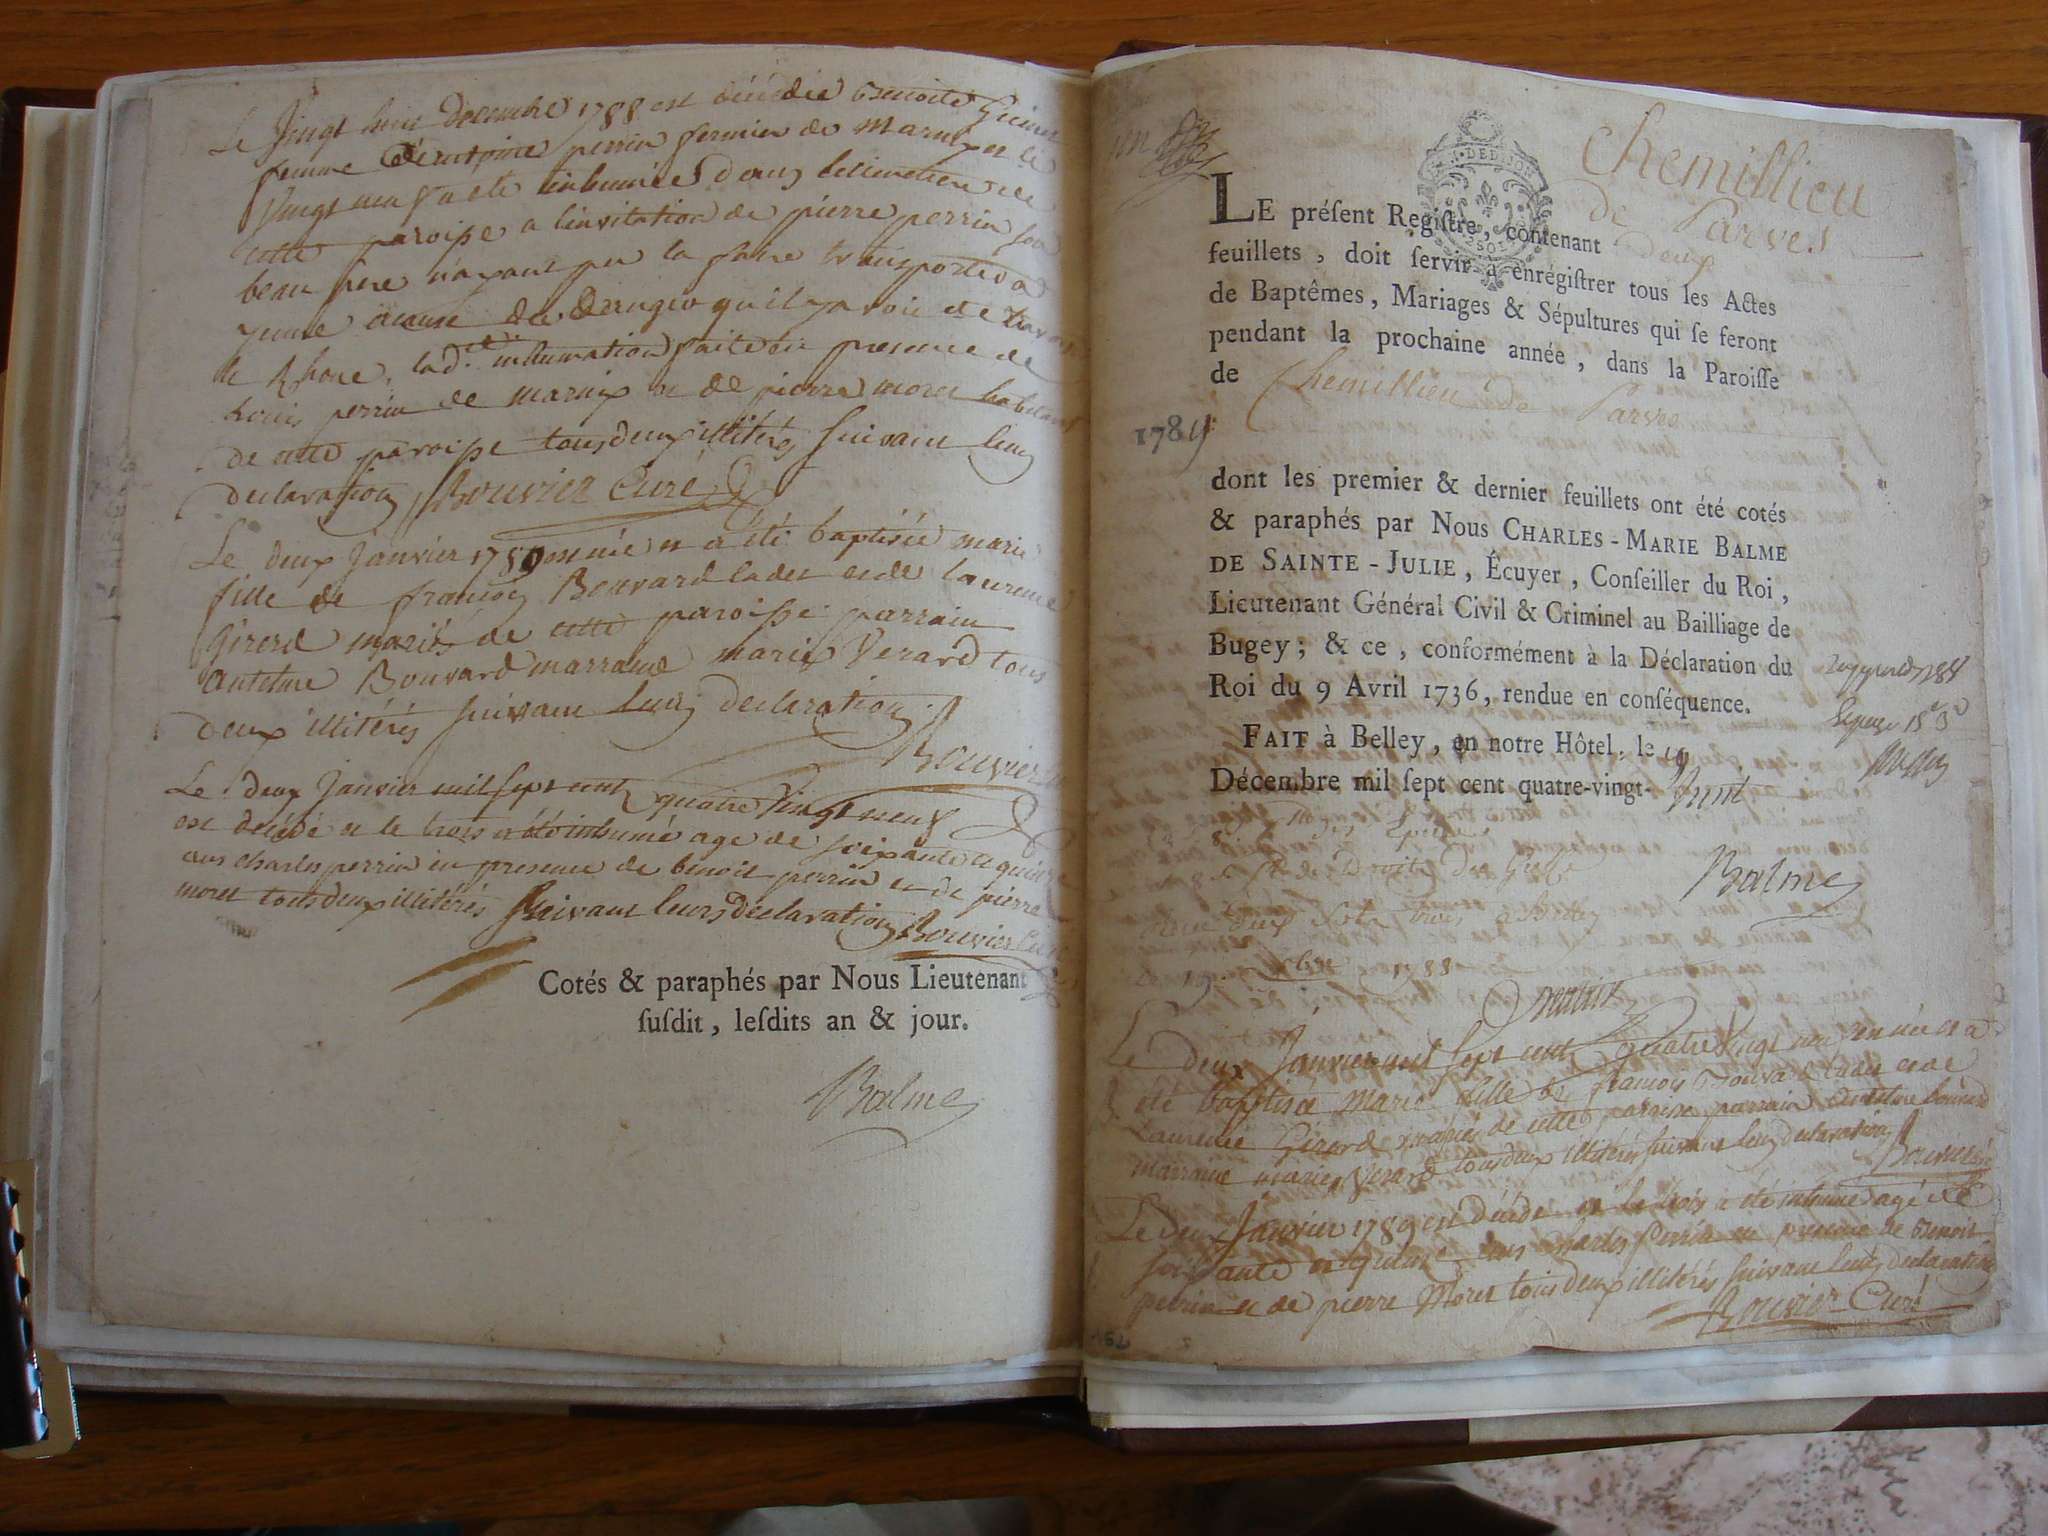 Le vingt huit decembre 1788 est décédée Benoite
femme d'antoine perrin fermier de Marnix et le
vingt neuf a été inhumée dans le cimetiere de
cette paroisse a l'invitation de pierre perrin son
beau frere n'ayant pu la faire transporter a
yenne acause du danger qu'il y avoit de traverser
le Rhone, lad.te inhumation faite en presence de
Louis perrin de marnix et de pierre moret habitant
de cette paroisse tous deux illiterés suivant leurs
declarations Bouvier Curé
Le deux Janvier 1789 est née et a été baptisée marie
fille de françois Bouvard cadet et de laurence
Girerd mariés de cette paroisse parrain
Antelme Bouvard marraine marie Verard tous
deux illiterés suivant leurs declarations
Bouvier
Le deux Janvier mil sept cent quatre vingt neuf
est decédé et le trois a été inhumé age de soixante et quinze
ans charles perrin en presence de benoit perrin et de pierre
moret tous deux illitérés suivant leurs déclarations Bouvier Curé
Cotés & paraphés par Nous Lieutenant
ſuſdit, leſdits an & jour.
Balme
Chemillieu
de Parves
LE préſent Regiſtre, contenant deux
feuillets, doit ſervir à enrégiſtrer tous les Actes
de Baptêmes, Mariages & Sépultures qui ſe feront
pendant la prochaine année, dans la Paroiſſe
de Chemillieu de Parves
1789
dont les premier & dernier feuillets ont été cotés
& paraphés par Nous CHARLES-MARIE BALME
DE SAINTE-JULIE, Écuyer, Conſeiller du Roi,
Lieutenant Général Civil & Criminel au Bailliage de
Bugey; & ce, conformément à la Déclaration du
Roi du 9 Avril 1736, rendue en conſéquence.
FAIT à Belley, en notre Hôtel, le 19
Décembre mil ſept cent quatre-vingt-huit
Balme
1788
Le deux Janvier mil sept cent quatre vingt neuf est née et a
été baptisée Marie fille de françois Bouvard cadet et de
Laurence Girerd mariés de cette paroisse parrain antelme bouvard
marraine marie Verard tous deux illitérés suivant leurs declarations
Bouvier
Le deux Janvier 1789 est décédé et le trois a été inhumé agé de
soixante et quinze ans charles Perrin en presence de Benoit
perrin et de pierre Moret tous deux illitérés suivant leurs declarations
Bouvier Curé